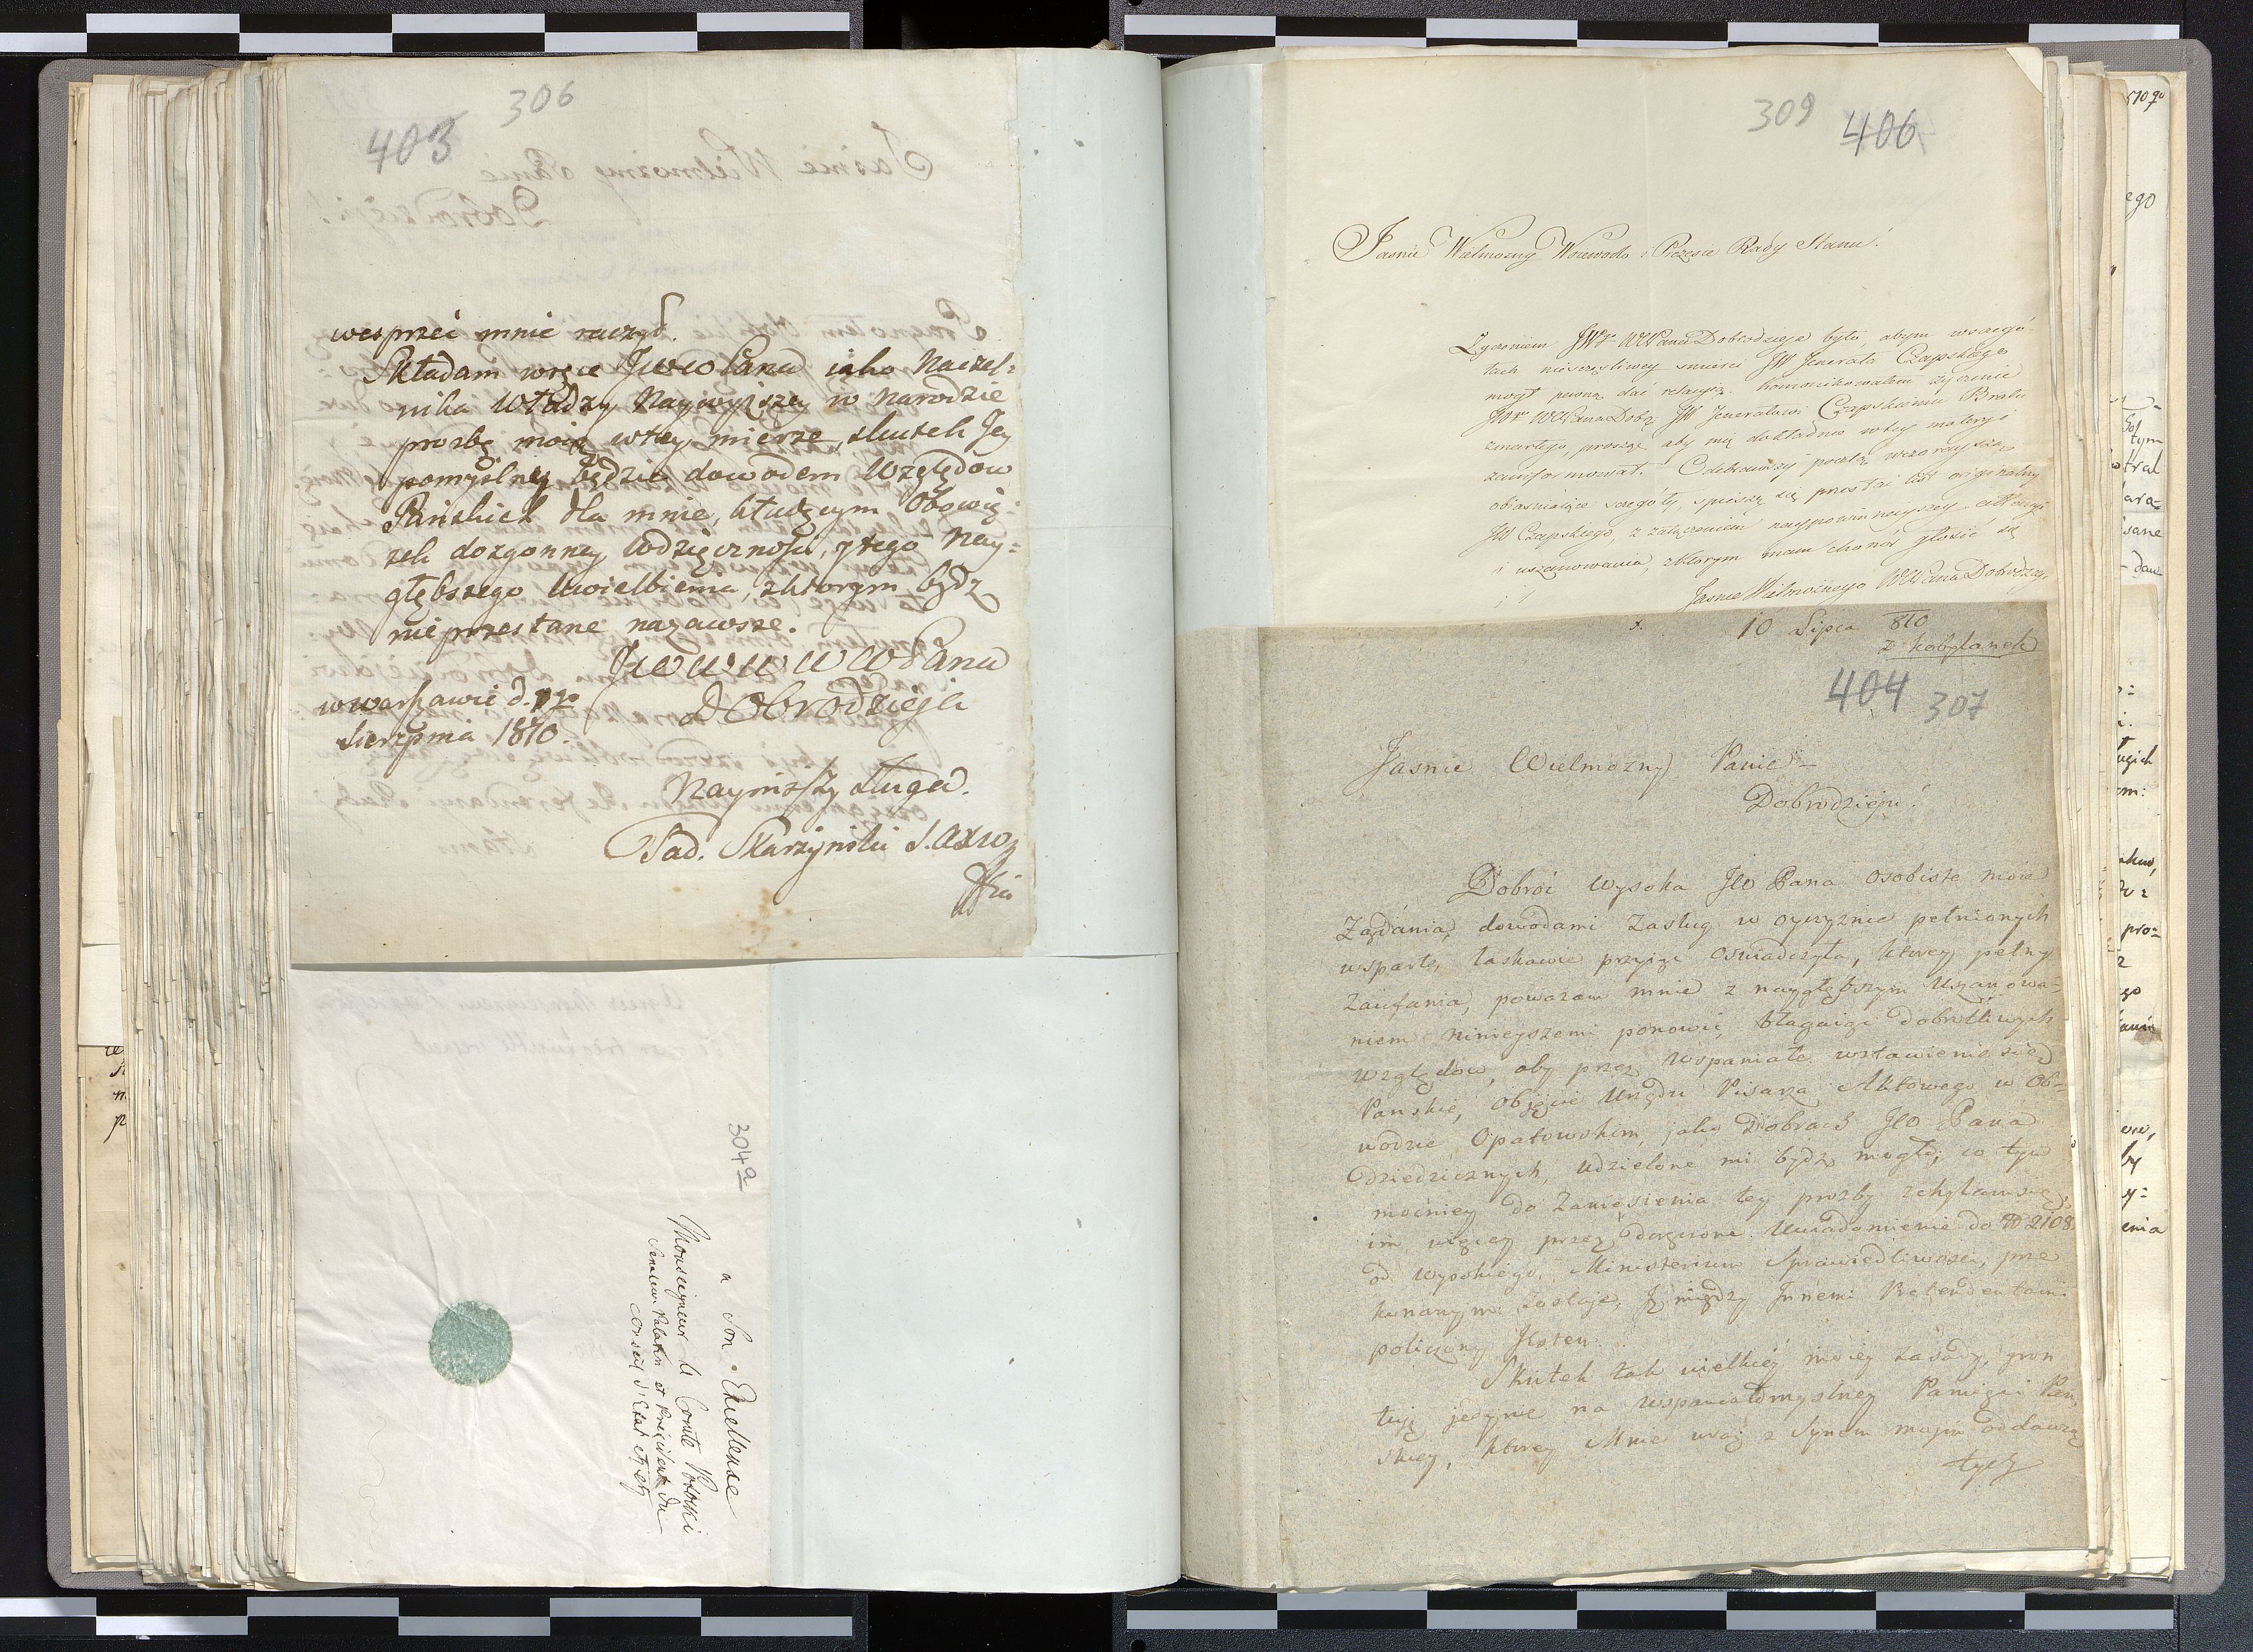 306
403
wesprzeć mnie raczył.
Składam wręce JWWPana iako Naczel=
nika Władzy Naywyższey w Narodzie
prozbę moią wtey mierze, skutek Jey
pomyślney będzie dowodem Względow
Pańskich dla mnie,ktudzym Obowią
zek dozgonney wdzięczności, y tego Nay=
głębszego Uwielbienia, zktorym bydz
nieprzestanę nazawsze.
JWWWWWPana
Dobrodzieja
wWarszawie d.
Sierpnia 1810.
Nayniższy sługa.
Tad. Skarzyński
304a
a Son Excellence
Monseigneur le Comte Potocki
Senateur Palatin et Président du
Conseil d'Etat etc etc
309
406
Jasnie Wielmozny Woiewodo i Prezesie Rady Stanu!
Zyczeniem JWgo WWPana Dobrodzieja było, abym wszczegó-
łach nieszczęsliwey smierci JW Jenerała Czapskiego
mogł pewną dać relacyią. komonikowałem życzenie
JWgo WWPana Dobr. JW Jenerałowi Czapskiemu Bratu
zmarłego, proszę aby mię dokładnie wtey materyi
zainformował. Odebrawszy pocztą wczorayszą
obiasniaiące sczegóły, spieszę się przesłać list originalny
JW Czapskiego, z załączeniem naypowinnayszey
i uszanowania, zktorym mam honor głosić się
Jasnie Wielmożnego WWPana Dobrodzieja
10 Lipca 810
z Kobylanek
404 307
Jasnie Wielmozny Panie
Dobrodzieju!
Dobroć wysoka JW Pana osobiste moie
Ządania, dowodami Zasług w oyczyznie pełnionych
wsparte, łaskawie przyiąć oswiadczyła, ktorey pełny
Zaufania, powazam mnie z naygłębszym Uszanowa-
niem ninieyszemi ponowić, błagaiąc dobrotliwych
względow, aby przez wspaniałe wstawienie się
Panskie, objęcie Urzędu Pisarza Aktowego w Ob-
wodzie Opatowskim, jako Dobrach JW Pana
Dziedzicznych, udzielone mi bydz mogło, co tym
mocniey do Zaniesienia tey prozby
im więcey przez doręczone Uwiadomienie do N 2108
od wysokiego Ministerium Sprawiedliwosci, prze
konanym zostaję, ze między Innemi Pretendentami
policzony Jestem.
Skutek tak wielkiey moiey zasady, grun
tuię jedynie na wspaniałomyslney Pamięci Pan
skiey, ktorey Mnie wraz z Synem moim oddawszę
tych